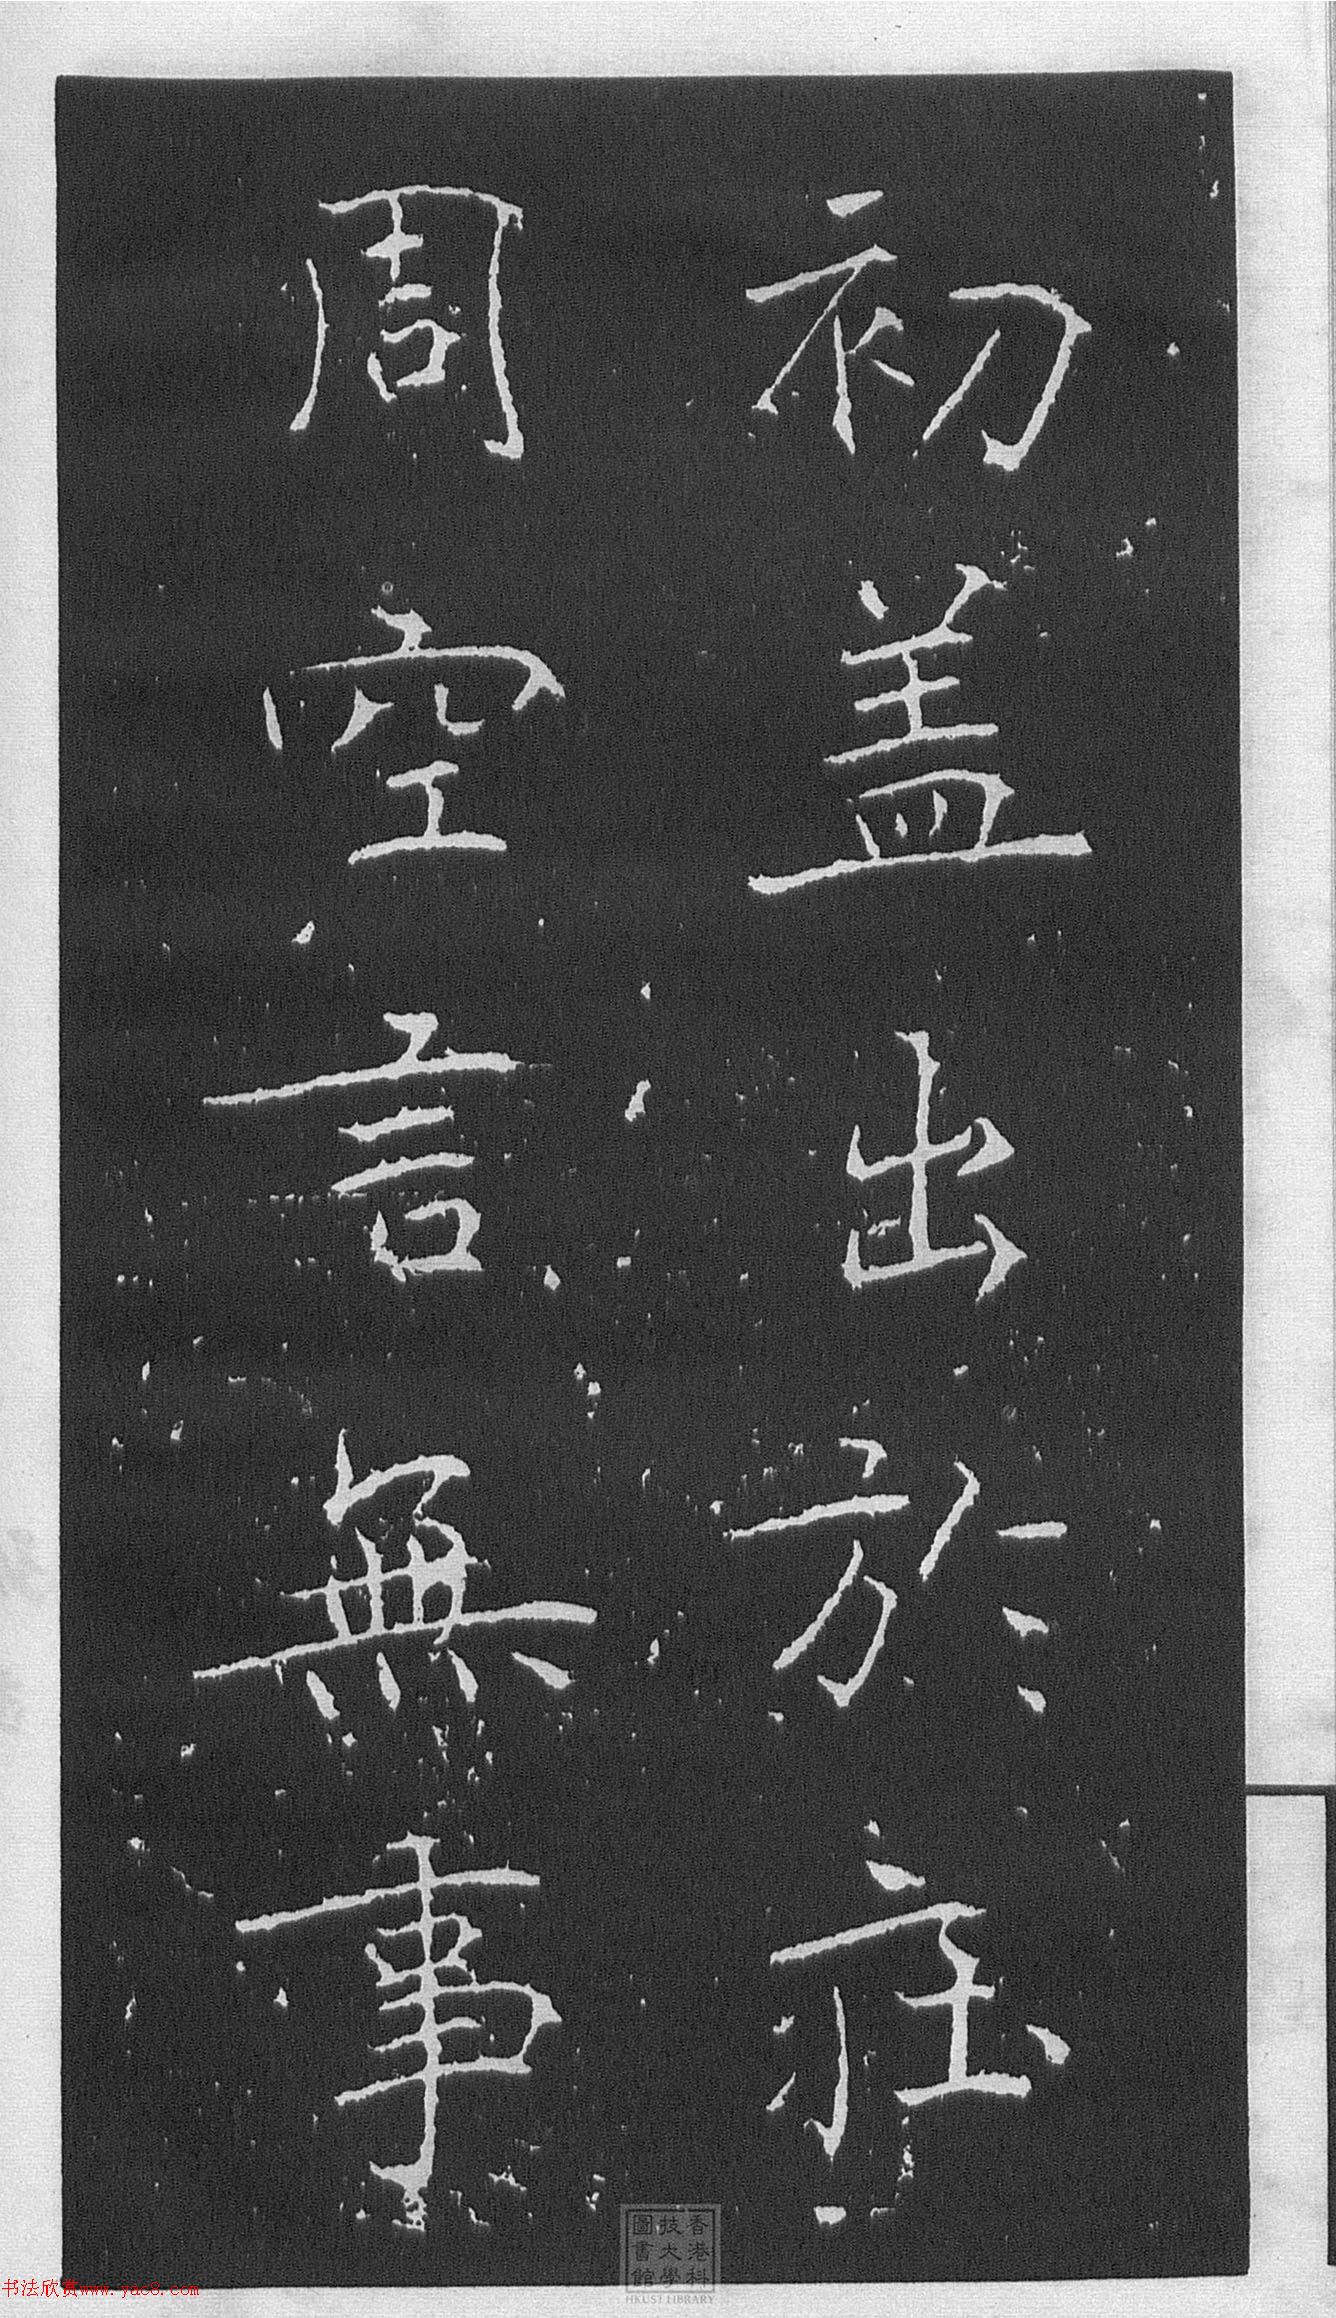 初盖出於庄
周空言無事
香港科
技大學
圖書館
HKUST LIBRARY
书法欣赏www.yac8.com